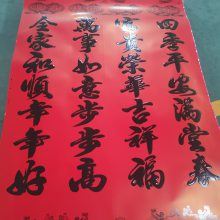 四季平安滿堂春
富貴榮華吉祥福
萬事如意步步高
全家和順年年好